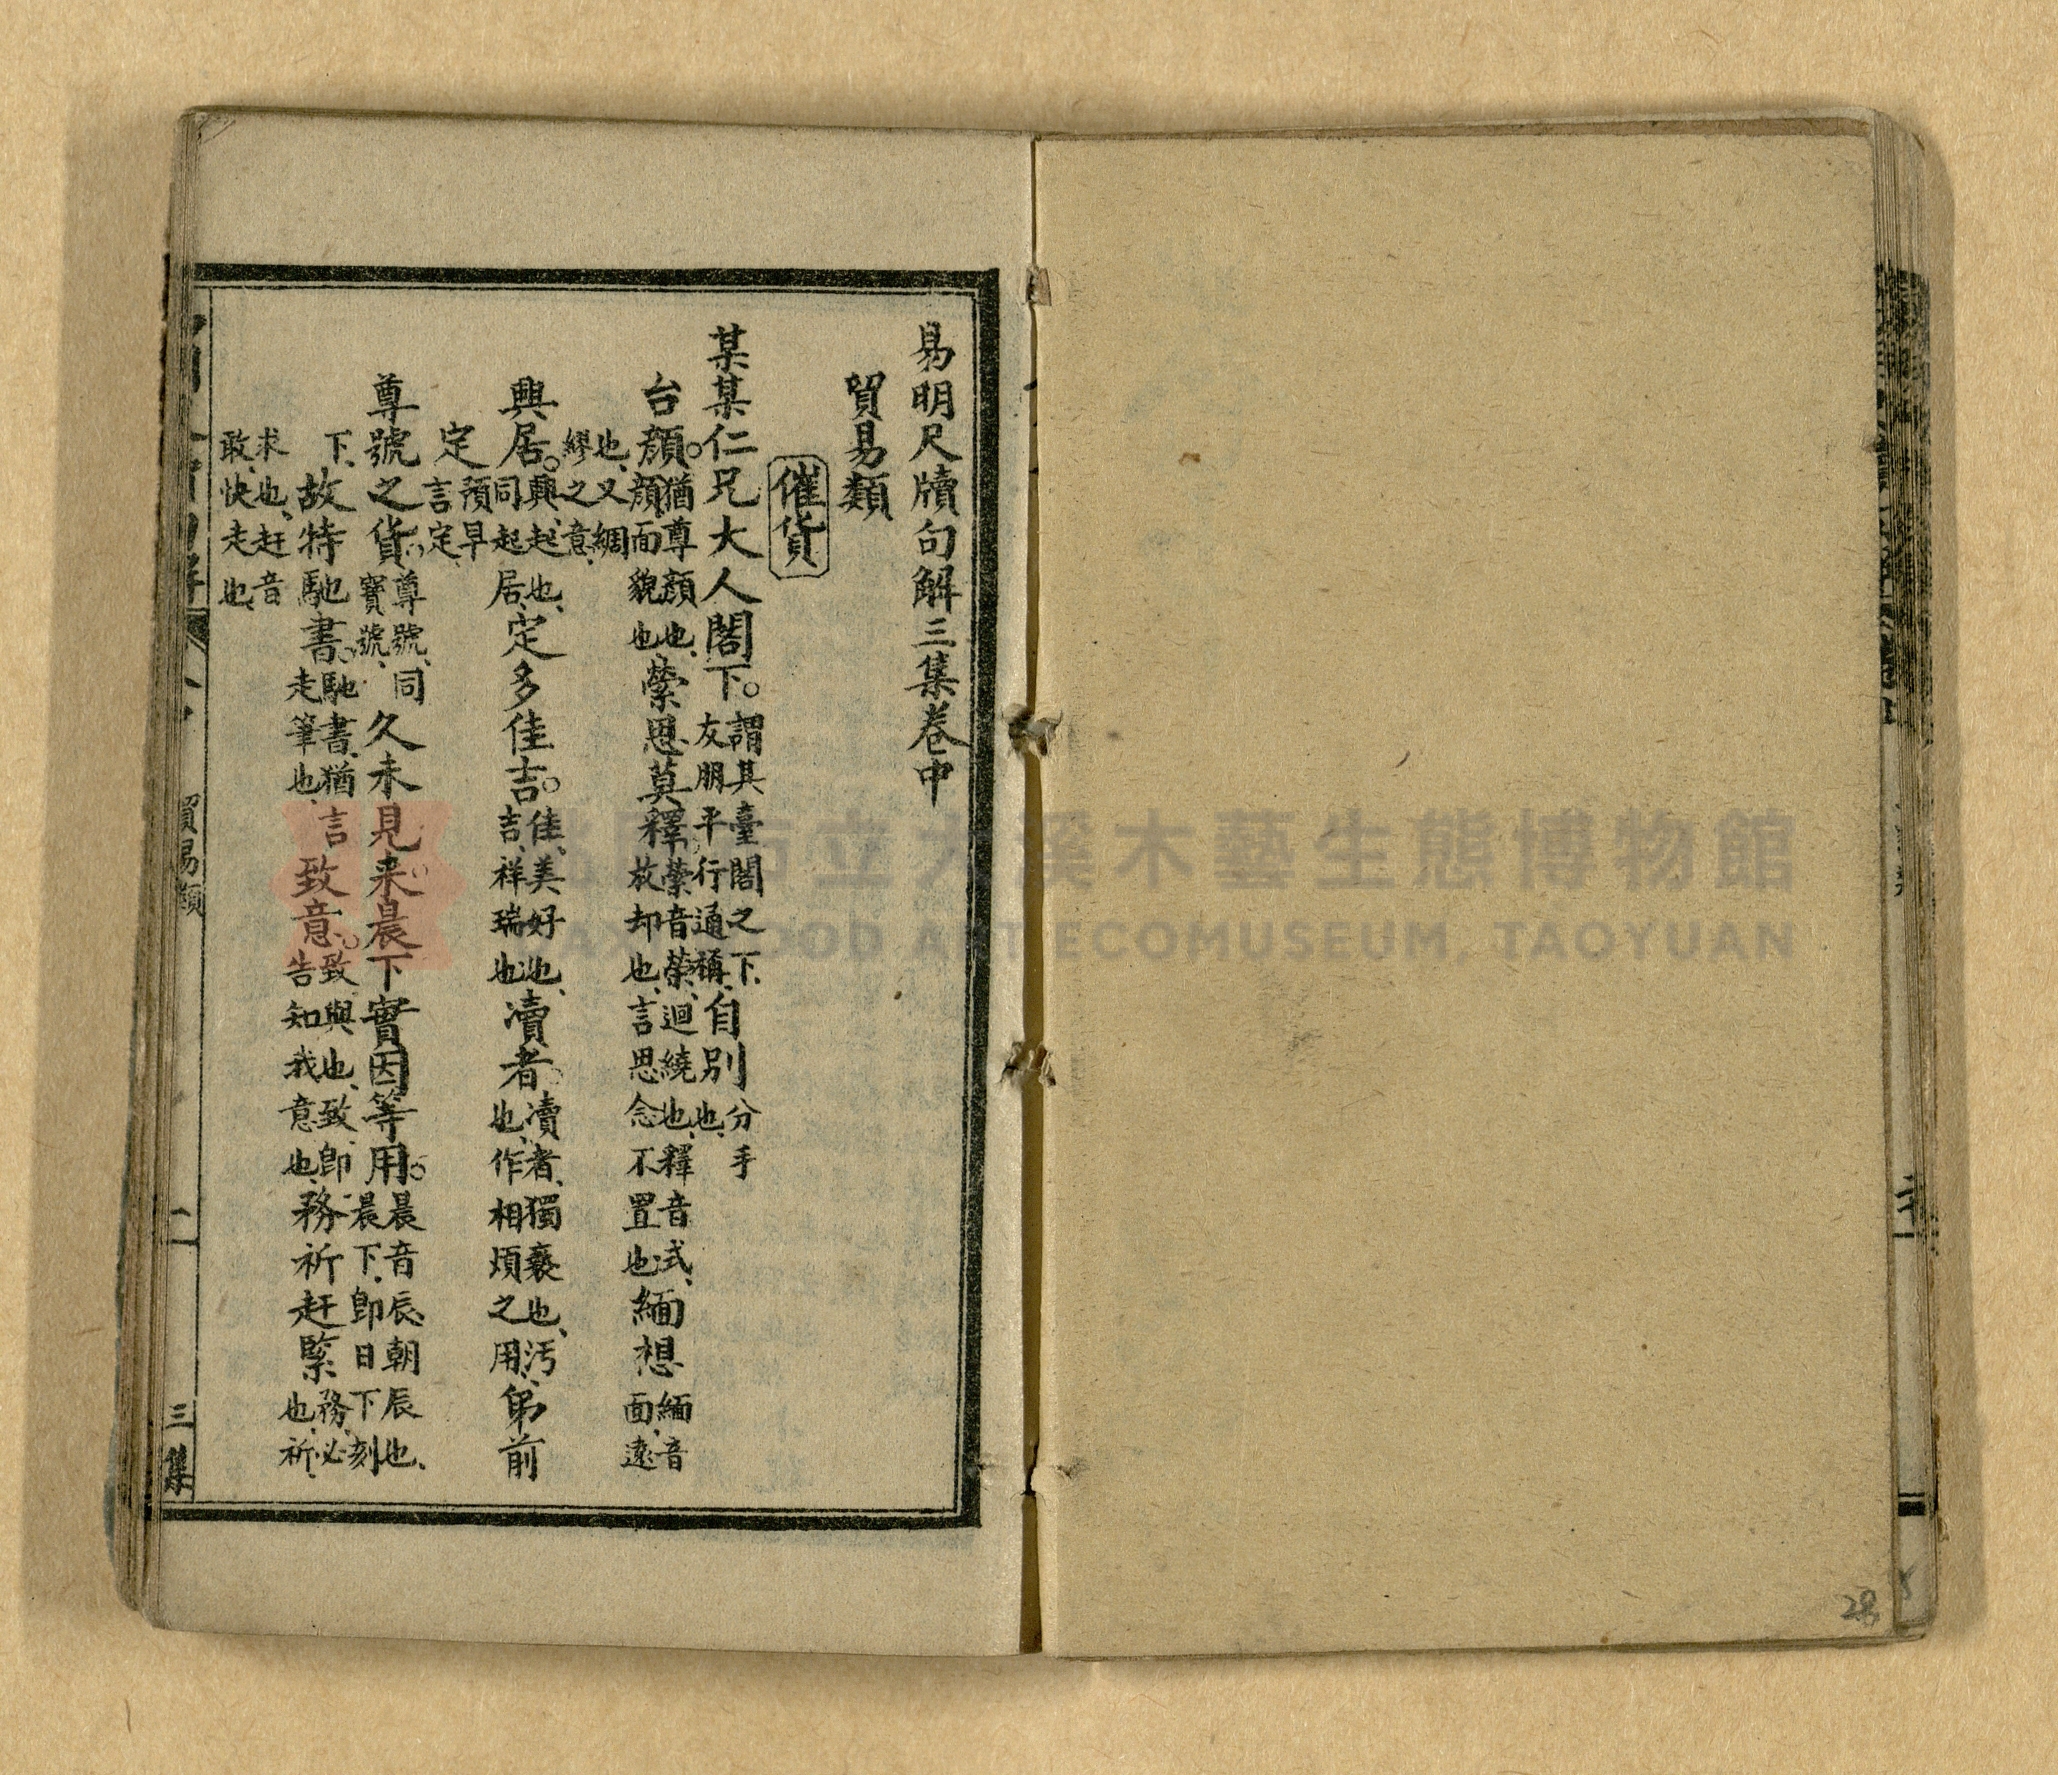 易明尺牘句解三集卷中
貿易類
催貨
某某仁兄大人閣下。謂其臺閣之下、友朋平行通稱、自別分手也、
台顏。猶尊顏也、顏面貌也縈思莫釋縈音榮、迴繞也、釋音式、放却也、言思念不置也緬想緬音面、遠
也、又綢繆之意、
興居。興起也、居同起居、定多佳吉。佳、美好也、吉、祥瑞也瀆者、瀆者、獨褻也、污也、作相煩之用、弟前
定預早言定、
尊號之貨、尊號、同寶號、久未見来晨下實因等用。晨音辰、朝辰也、晨下、即日下刻
下、故特馳書。馳書、猶言走筆也、致意。致與也、致即告知我意也、務祈赶緊務、必也、祈、
求也、赶音敢、快走也、
貿易類
二
三集
桃園市立大溪木藝生態博物館
DAXI WOOD ART ECOMUSEUM, TAOYUAN
28